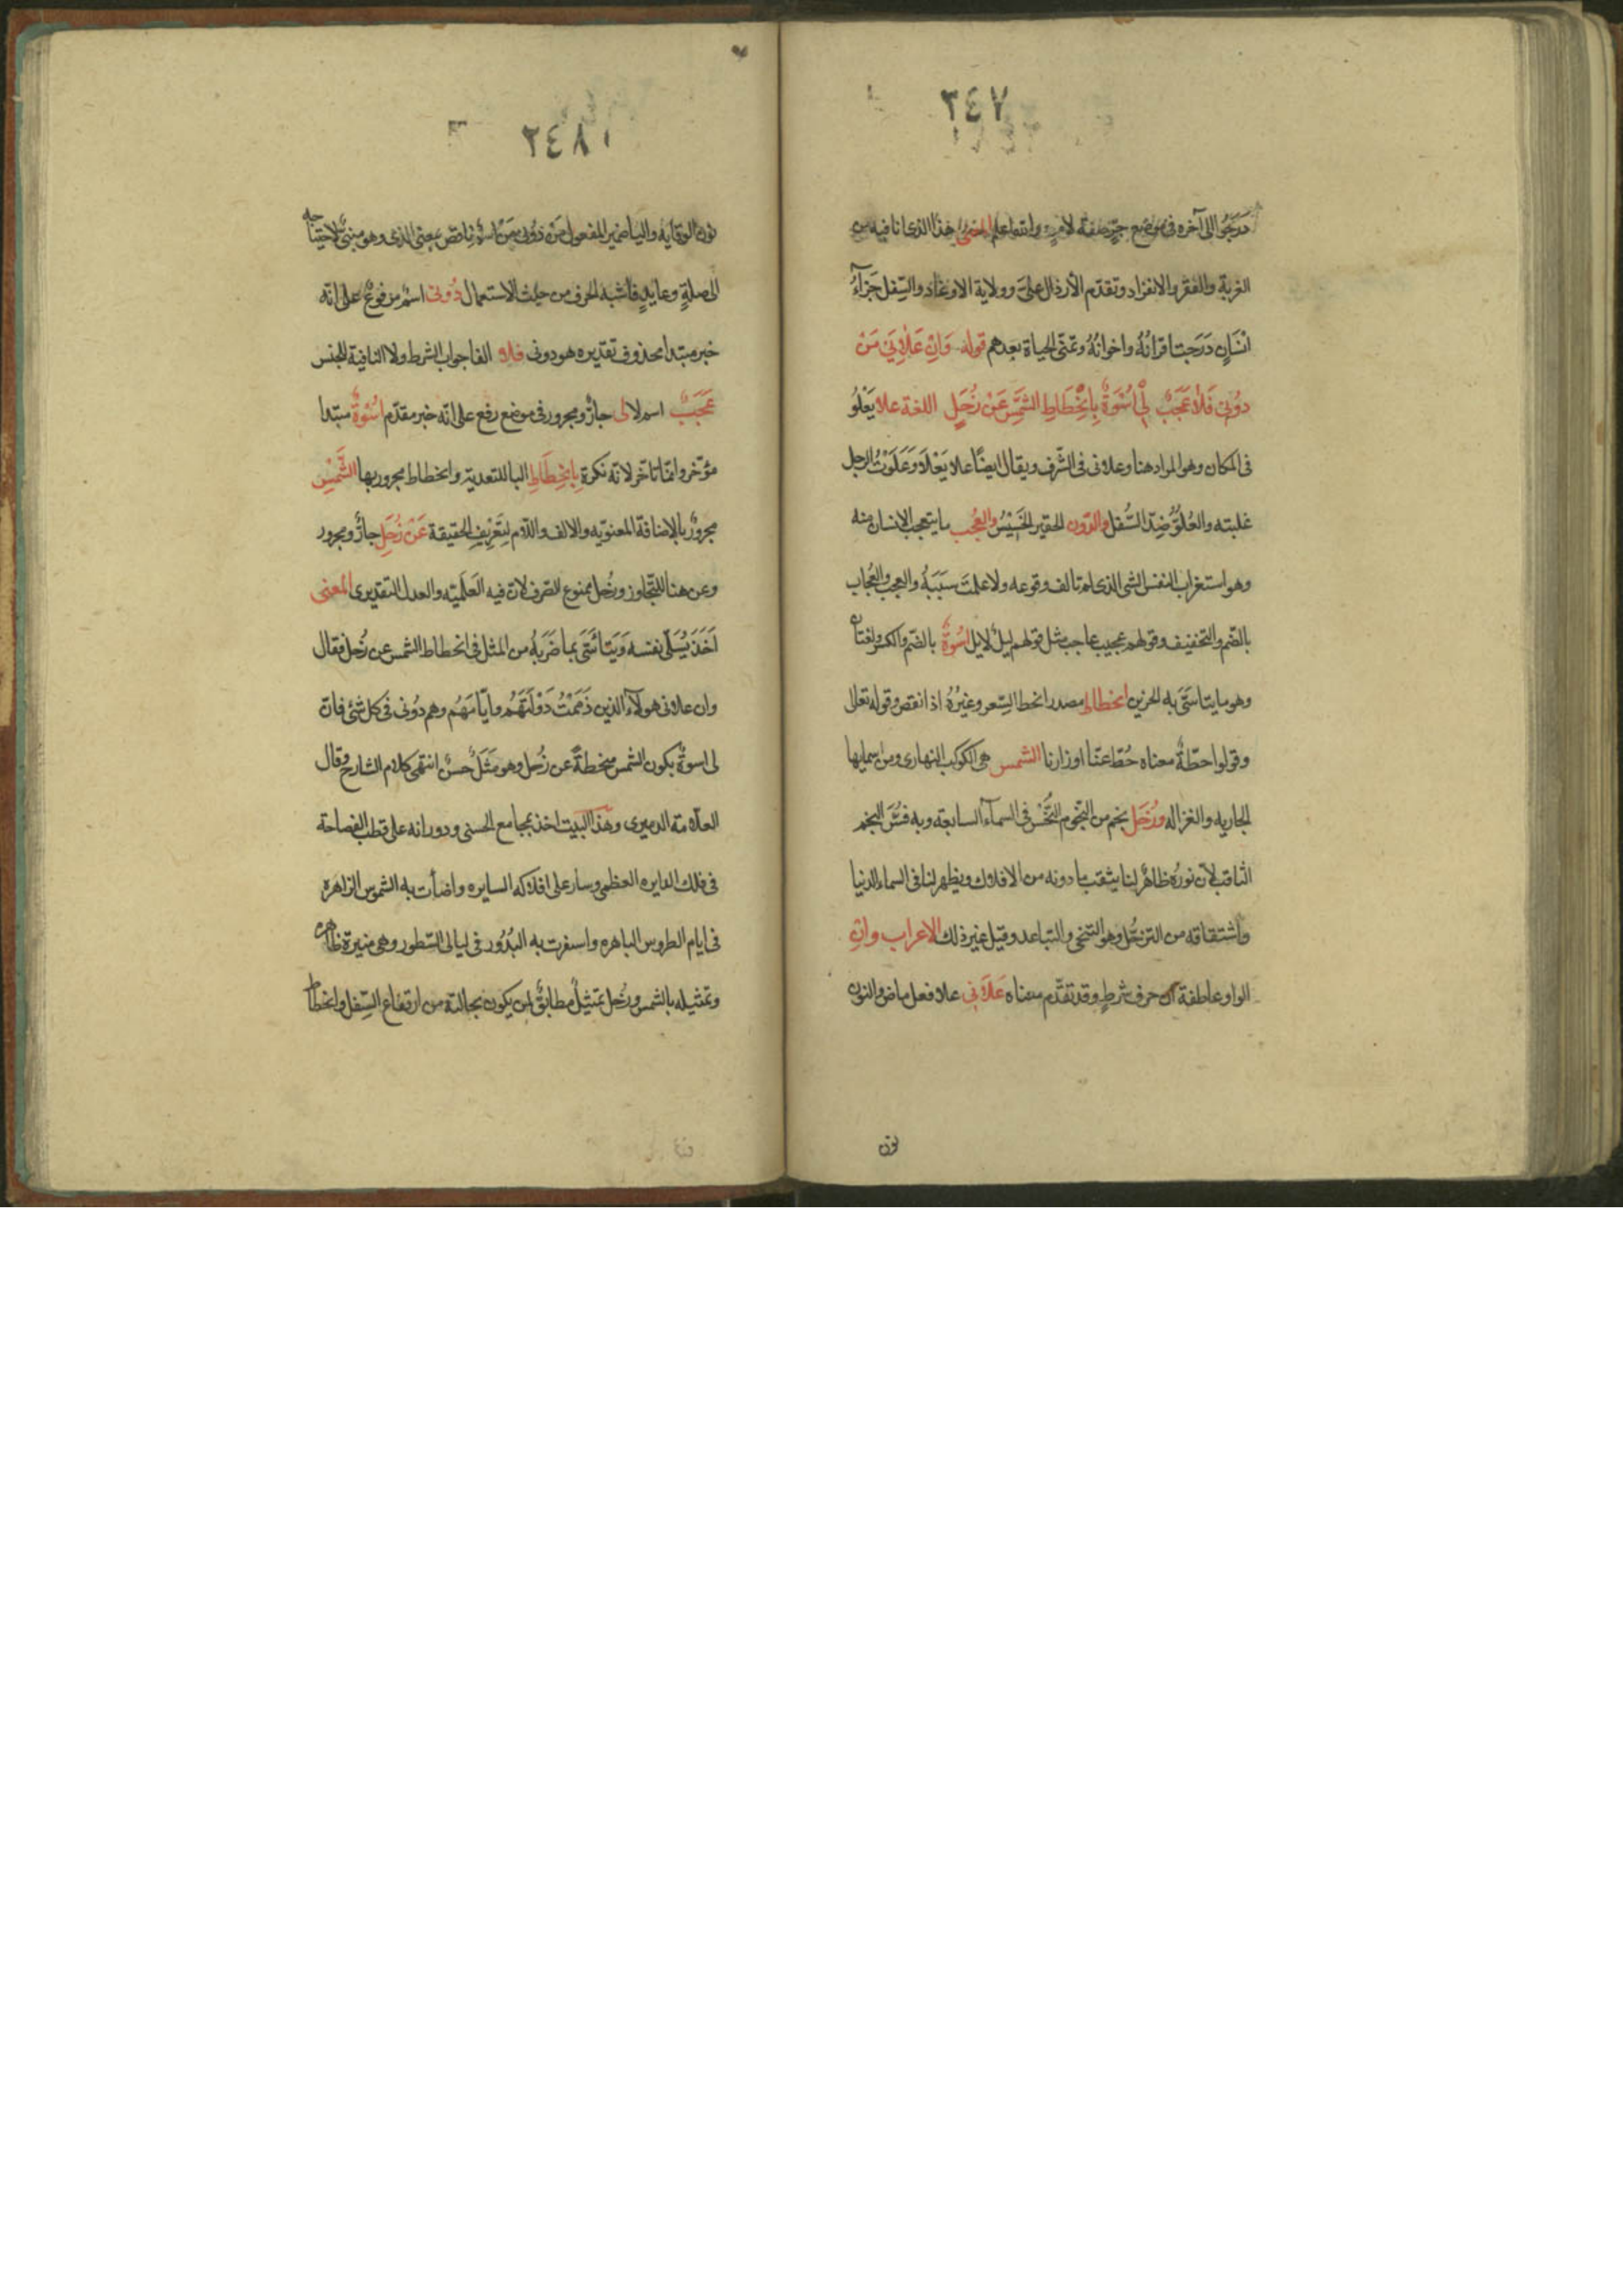 ٢٤٧
درجوا الى آخره في موضع جرّ صفة لامرئ وانتفاعل المعنى هذا الذي انا فيه من
الغربة والفقر والانفراد وتقدّم الأرذال علىّ وولاية الاوغاد والسفل جَزَآءُ
انْسَانٍ دَرَجَت اقرانُهُ واخوانُهُ وتمنّى الحياة بعدهم قوله وَاِنْ عَلَانِي مَنْ
دُوني فَلَا عَجَبٌ لِي اُسْوَةٌ بِانْحِطَاطِ الشَّمْسِ عَنْ زُحَلِ اللغة علا يَعْلُو
في المكان وهو المراد هنا وعلاني في الشّرف ويقال ايضًا علا يَعْلَا وَعَلَوْتُ الرجل
غلبته والعُلوُّ ضِدّ السُّفل والدّون الحقير الخَسِيْسُ والعجب ما يتعجب الانسان منه
وهو استغراب النفس الشي الذي لم تالف وقوعه ولا علمت سَبَبَهُ والعجب والعُجاب
بالضّم والتخفيف وقولهم عجيب عاجب مثل قولهم ليلٌ لايل اُسْوَةٌ بالضّم والكسر لغتان
وهو ما يتاسّى به الحزين انحطاط مصدر انحط السِّعر وغيْرُهُ اذا نقص وقوله تعالى
وقولوا حطّةٌ معناه حُطّ عنّا اوزارنا الشمس هي الكوكب النهاري ومن اسمايها
الجاريه والغزاله وزُحَل نجم من النّجوم الخُنَّس في السمآء السابعة وبه فسّر النجم
الثاقب لأن نورَه ظاهرٌ لنا يثقب ما دونه من الافلاك ويظهر لنا في السماء الدنيا
واشتقاقه من التزحُّل وهو التنحّي والتباعد وقيل غير ذلك الاعراب وان
الواو عاطفة ان حرف شرطٍ وقد تقدّم معناه عَلَانِي علا فعل ماض والنون
نون
٢٤٨
نون الوقاية واليا ضمير المفعول مَنْ دوني مَنْ اسمٌ ناقص بمعنى الذي وهو مبنيٌّ لاحتياجه
الى صلةٍ وعايدٍ فاشبه الحرف من حيث الاستعمال دُونِي اسمٌ مرفوعٌ على انّه
خبر مبتدا محذوف تقديره هو دوني فلا الفا جواب الشرط ولا النافية للجنس
عَجَبٌ اسم لا لي جارٌّ ومجرور في موضع رفع على انّه خبر مقدّم اُسْوَةٌ مبتدا
مؤخّر وانّما تاخّر لانّه نكرة بِانْحِطَاطِ البا للتعدية وانحطاط مجرور بها الشَّمْسِ
مجرورٌ بالاضافة المعنويّه والالف واللّام لِتعْرِيفِ الحقيقة عَنْ زُحَلِ جارٌّ ومجرور
وعن هنا للتّجاوز وزُحل ممنوع الصّرف لان فيه العَلَميّه والعدل التقديري المعنى
اَخَذَ يُسَلّي نفسه وَيَتَأَسّى بما ضَرَبَهُ من المثل في انحطاط الشمس عن زُحل فقال
وان علاني هولآء الذين ذَمَمْتُ دَوْلَتَهُم وايّامَهُم وهم دُوني في كل شئ فان
لي اسوةٌ بكون الشمس منحطةً عن زُحل وهو مَثَلٌ حسنٌ انتهى كلام الشارح وقال
العلّامة الدميري وهذا البيت اخذ بمجامع الحسني ودورانه على قطب الفصاحة
في فلك الدايره العظمى وسار على افلاكه السايره واضأت به الشموس الزاهرة
في ايام الطروس الباهره واسفرت به البُدُور في ليالى السّطور وهي منيرة ظاهره
وتمثيله بالشمس وزُحل تمثيلٌ مطابقٌ لمن يكون بحالته من ارتفاع السّفل وانحطاط